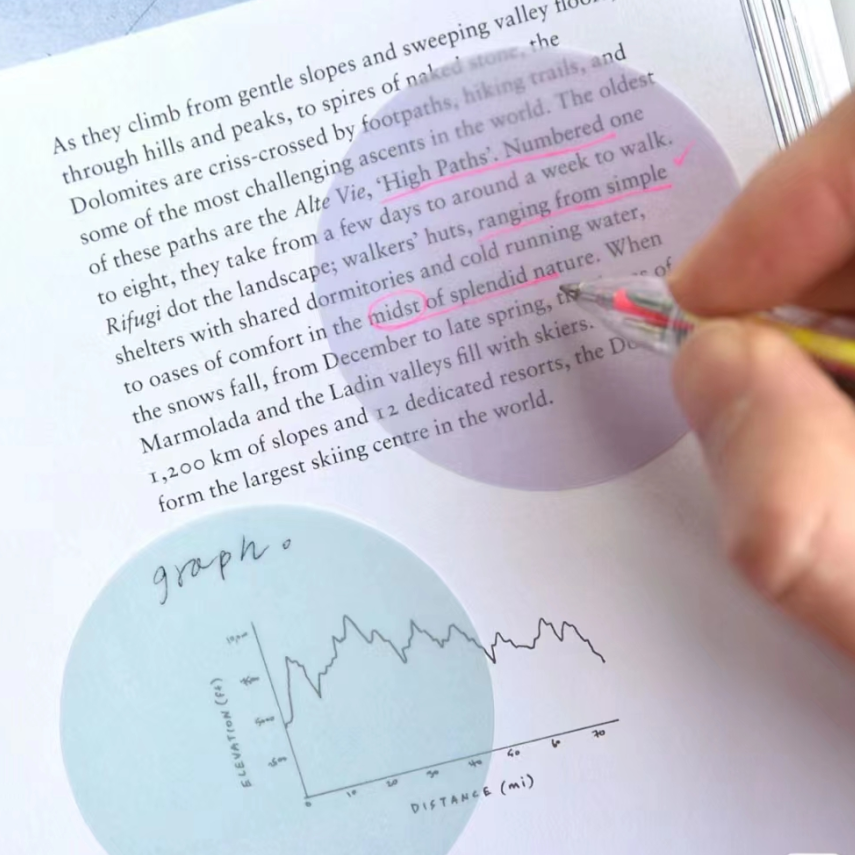 As they climb from gentle slopes and sweeping valley
through hills and peaks, to spires of naked stone, the
Dolomites are criss-crossed by footpaths, hiking trails, and
some of the most challenging ascents in the world. The oldest
of these paths are the Alte Vie, ‘High Paths’. Numbered one
to eight, they take from a few days to around a week to walk.
Rifugi dot the landscape; walkers’ huts, ranging from simple
shelters with shared dormitories and cold running water,
to oases of comfort in the midst of splendid nature. When
the snows fall, from December to late spring, of
Marmolada and the Ladin valleys fill with skiers.
1,200 km of slopes and 12 dedicated resorts, the
form the largest skiing centre in the world.
graph.
ELEVATION (ft)
0 10 20 30 40 60 70
DISTANCE (mi)